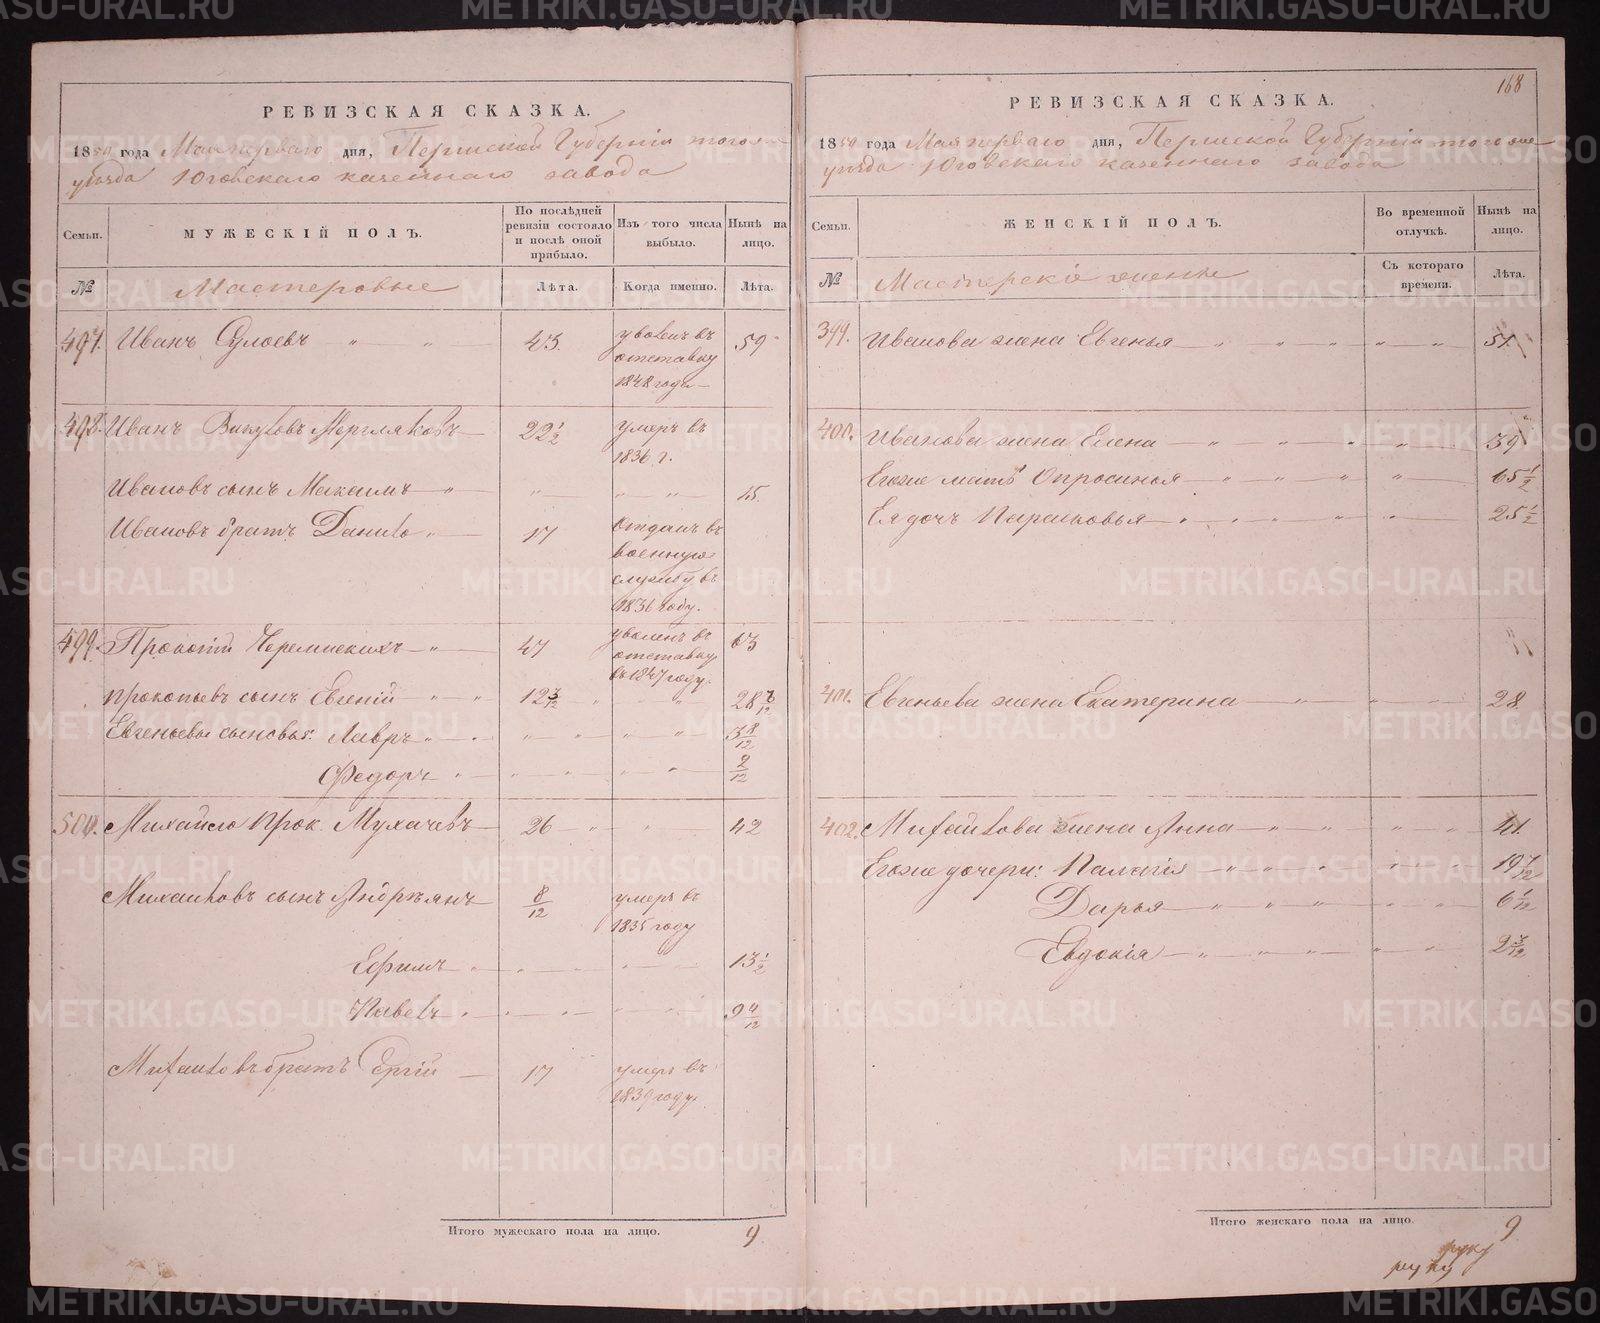 РЕВИЗСКАЯ СКАЗКА.
1850 года Мая перваго дня, Пермской Губерніи тогоже
уѣзда Юговскаго казеннаго завода
Семьи.
МУЖЕСКІЙ ПОЛЪ.
По послѣдней ревизіи состояло и послѣ оной прибыло.
Изъ того числа выбыло.
Нынѣ на лицо.
№
Мастеровые
Лѣта.
Когда именно.
Лѣта.
497. Иванъ 43. уволенъ въ 59
отставку
1848 года
498. Иванъ Мерзляковъ 22 1/2 умеръ въ
1836 г.
Ивановъ сынъ Максимъ " " " 15.
Ивановъ братъ Данило " 17 отданъ въ
военную
службу въ
1836 году.
499. Прокопій Черемискихъ " 47 уволенъ въ 63
отставку
въ 1847 году.
Прокопьевъ сынъ Евгеній " " 12 3/12 " " 28 7/12
Евгеньевы сыновья: Лавръ " " " " " " 3 8/12
Федоръ " " " " " 2/12
500. Михайло Прок. Мухачевъ 26 " " 42
Михайловъ сынъ Андреянъ 8/12 умеръ въ
1835 году
Ефимъ " " " " " 13 1/2
Павелъ " " " " " 9 4/12
Михайловъ братъ 17 умеръ въ
1839 году.
Итого мужескаго пола на лицо. 9
168
РЕВИЗСКАЯ СКАЗКА.
1850 года Мая перваго дня, Пермской Губерніи тогоже
уѣзда Юговскаго казеннаго завода
Семьи.
ЖЕНСКІЙ ПОЛЪ.
Во временной отлучкѣ.
Нынѣ на лицо.
№
Мастерскіе жены
Съ котораго времени.
Лѣта.
399. Иванова жена Евгенья " " " " " " 51.
400. Иванова жена Елена " " " " 39
Егоже мать Опросинья " " " " 65 1/2
Ея дочь Парасковья " " " " " 25 1/2
401. Евгеньева жена Екатерина " " " " 28
402. Михайлова жена Анна " " " " " 41.
Егоже дочери: Палагія " " " " " 19 7/12
Дарья " " " " " " 6 1/12
Евдокія " " " " " 2 3/12
Итого женскаго пола на лицо. 9
руку
руку
METRIKI.GASO-URAL.RU